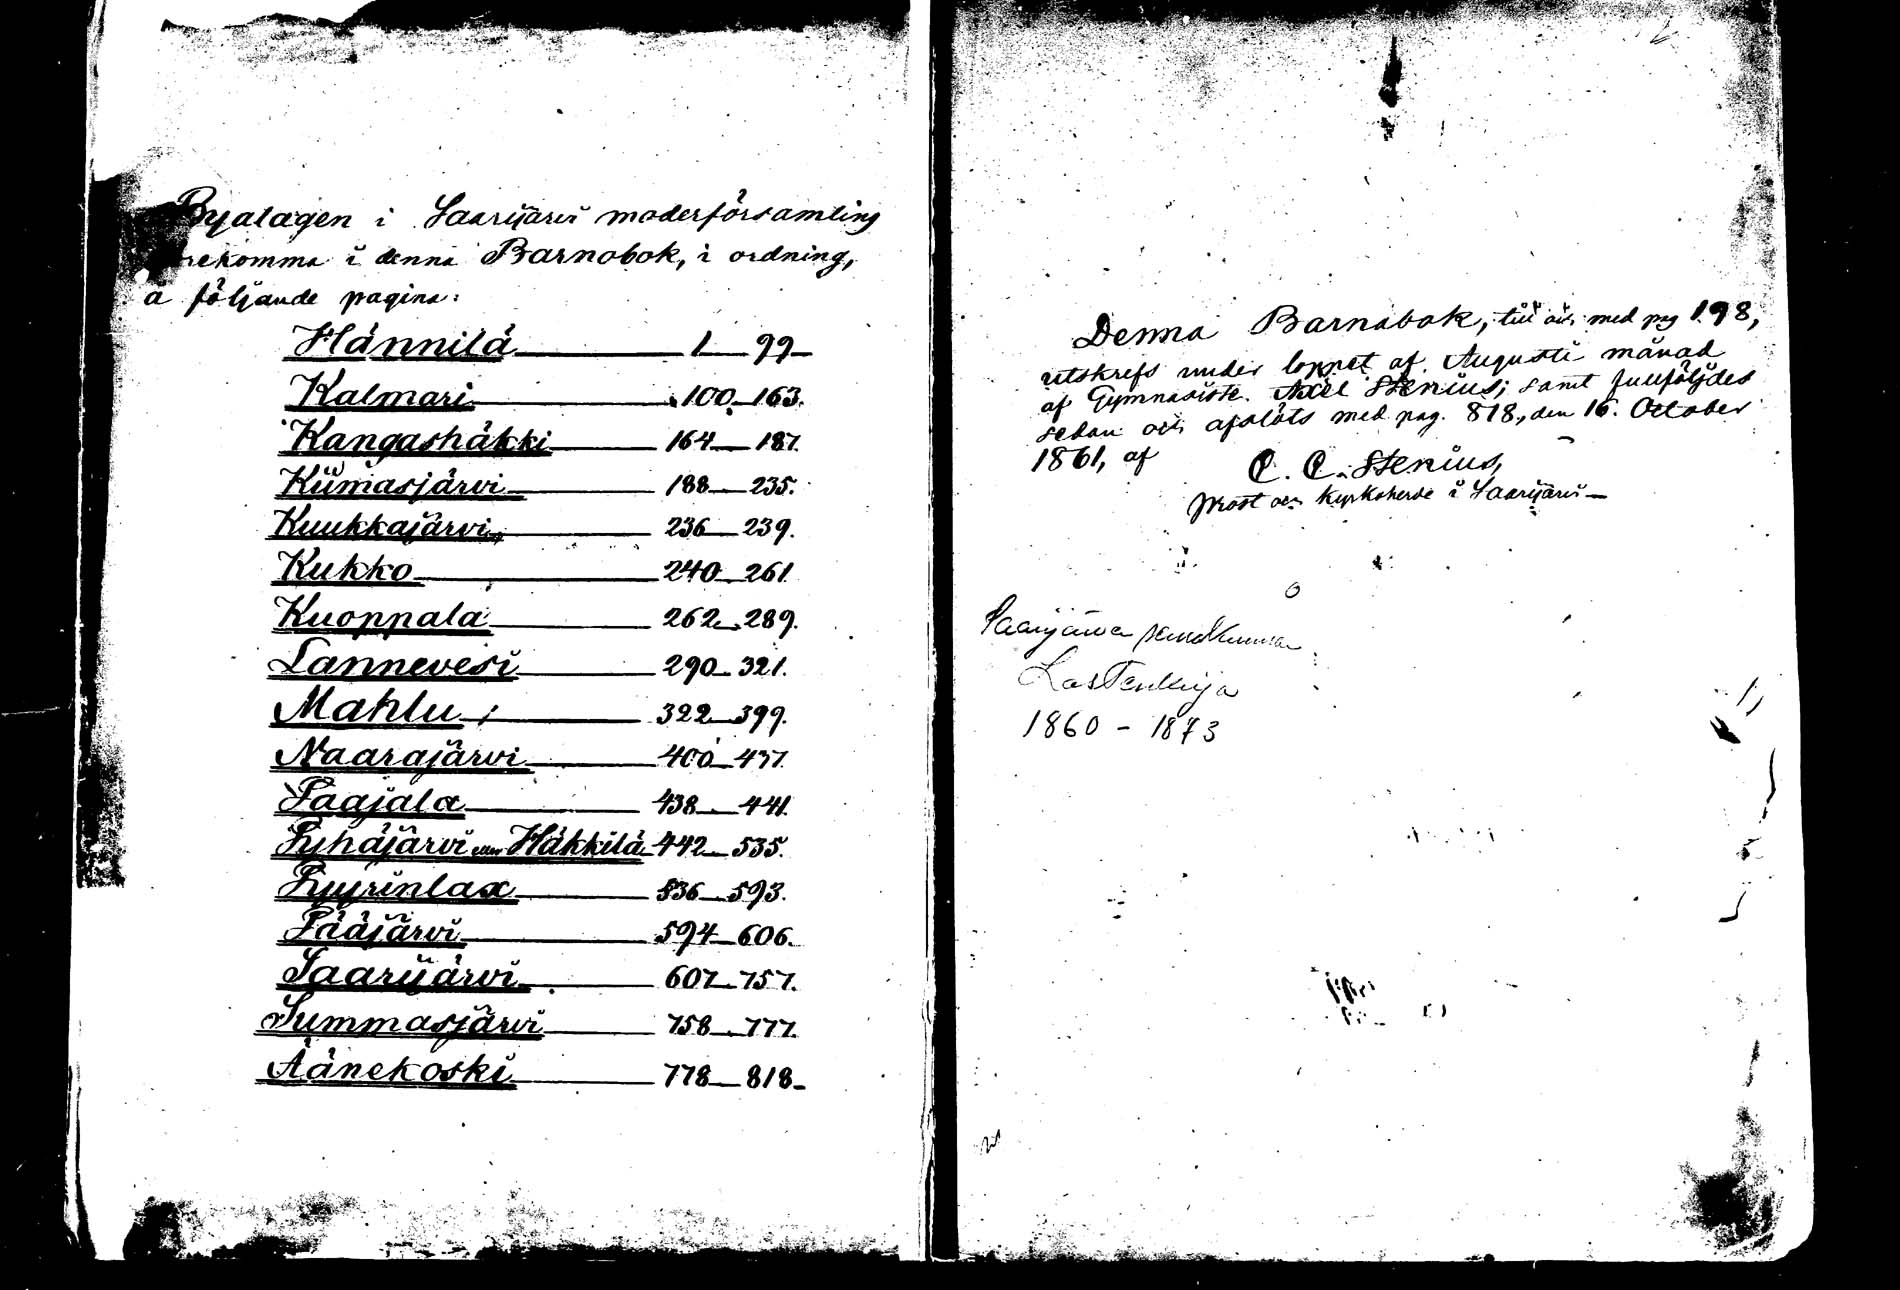 Byalagen i Saarijärvi moderförsamling
förekomma i denna Barnabok, i ordning,
å följande pagina:
Hännilä 1 — 99 —
Kalmari 100 — 163.
Kangashäkki 164 — 187.
Kiimasjärvi 188 — 235.
Kuukkajärvi 236 — 239.
Kukko 240 — 261.
Kuoppala 262 — 289.
Lannevesi 290 — 321.
Mahlu 322 — 399.
Naarajärvi 400 — 437.
Paajala 438 — 441.
Pyhäjärvi eller Häkkilä 442 — 535.
Pyyrinlax 536 — 593.
Pääjärvi 594 — 606.
Saarijärvi 607 — 757.
Summasjärvi 758 — 777.
Äänekoski 778 — 818 —
Denna Barnabok, till och med pag 198,
utskrefs under loppet af Augusti månad
af Gymnasisten Axel Stenius; samt fullföljdes
sedan och afslöts med pag. 818, den 16. October
1861, af
C. C. Stenius,
Prost och Kyrkoherde i Saarijärvi —
Saarijärven seurakunnan
Lastenkirja
1860 - 1873